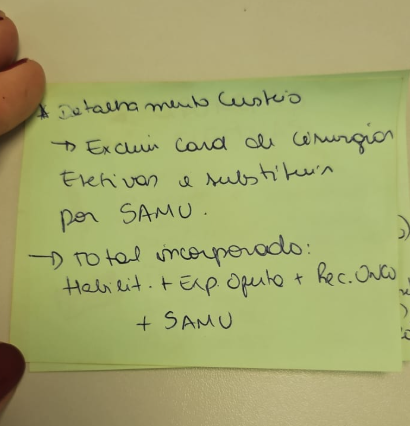 * Detalhamento Custeio
→ Excluir card de cirurgias
Eletivas e substituir
por SAMU.
→ Total incorporado:
Habilit. + Exp. Oferta + Rec. Onco
+ SAMU